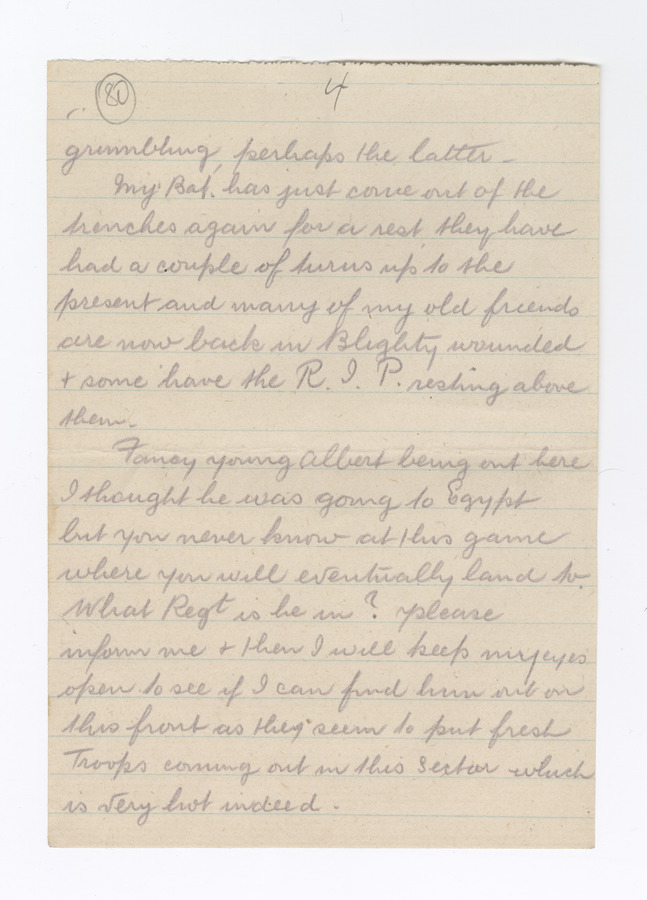 80
4
grumbling, perhaps the latter -
My Bat. has just come out of the
trenches again for a rest, they have
had a couple of turns up to the
present and many of my old friends
are now back in Blighty wounded
+ some have the R. I. P. resting above
them -
Fancy young Albert being out here
I thought he was going to Egypt
but you never know at this game
where you will eventually land to.
What Regt is he in? please
inform me + then I will keep my eyes
open to see if I can find him out on
this front as they seem to put fresh
Troops coming out in this Sector which
is very hot indeed -